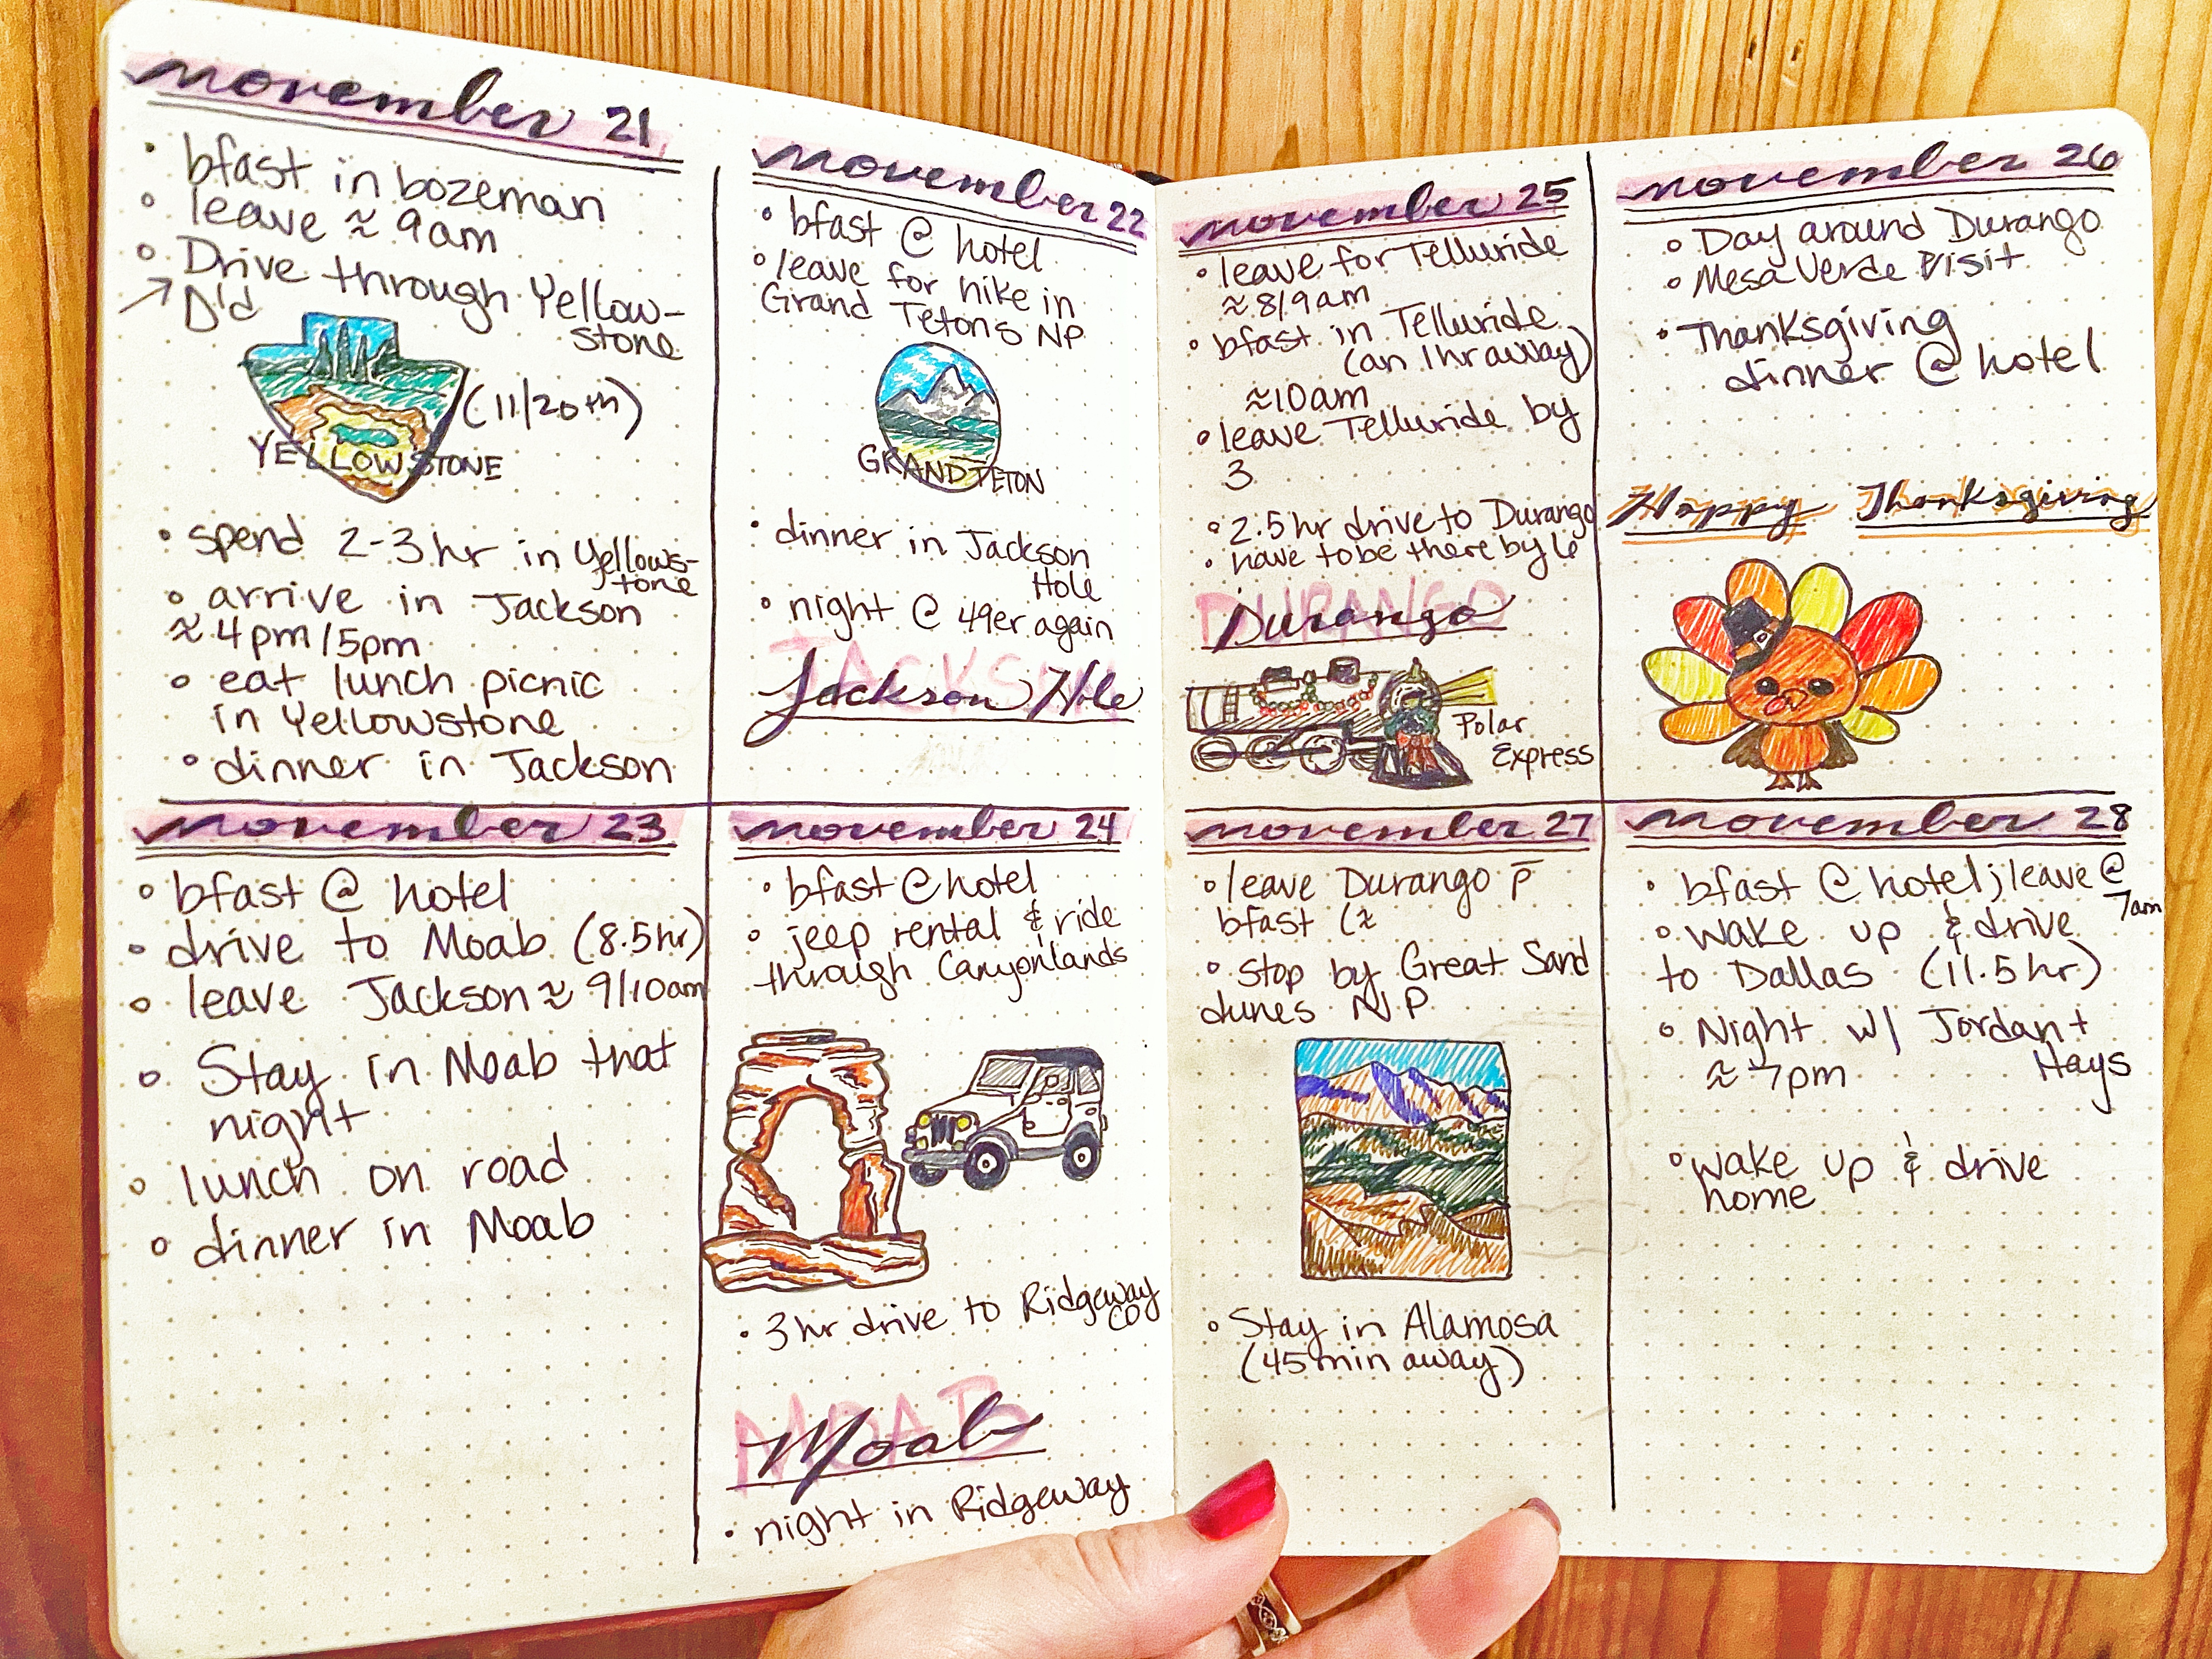 november 21
• bfast in bozeman
• leave ≈ 9am
• Drive through Yellow-
stone
↗ D'd
(11/20th)
YELLOWSTONE
• spend 2-3 hr in Yellows-
tone
• arrive in Jackson
≈ 4pm/5pm
• eat lunch picnic
in Yellowstone
• dinner in Jackson
november 22
• bfast @ hotel
• leave for hike in
Grand Tetons NP
GRAND TETON
• dinner in Jackson
Hole
• night @ 49er again
JACKSON
Jackson Hole
november 23
• bfast @ hotel
• drive to Moab (8.5hr)
• leave Jackson ≈ 9/10am
• Stay in Moab that
night
• lunch on road
• dinner in Moab
november 24
• bfast @ hotel
• jeep rental & ride
through Canyonlands
• 3 hr drive to Ridgeway
CO
MOAB
Moab
• night in Ridgeway
november 25
• leave for Telluride
≈ 8/9am
• bfast in Telluride
(an 1hr away)
≈10am
• leave Telluride by
3
• 2.5 hr drive to Durango
• have to be there by 6
DURANGO
Durango
Polar
Express
november 26
• Day around Durango
• Mesa Verde Visit
• Thanksgiving
dinner @ hotel
Happy Thanksgiving
november 27
• leave Durango p̄
bfast (≈
• stop by Great Sand
dunes N.P
• Stay in Alamosa
(45 min away)
november 28
• bfast @ hotel; leave @
7am
• wake up & drive
to Dallas (11.5 hr)
• Night w/ Jordan +
Hays
≈ 7pm
• wake up & drive
home